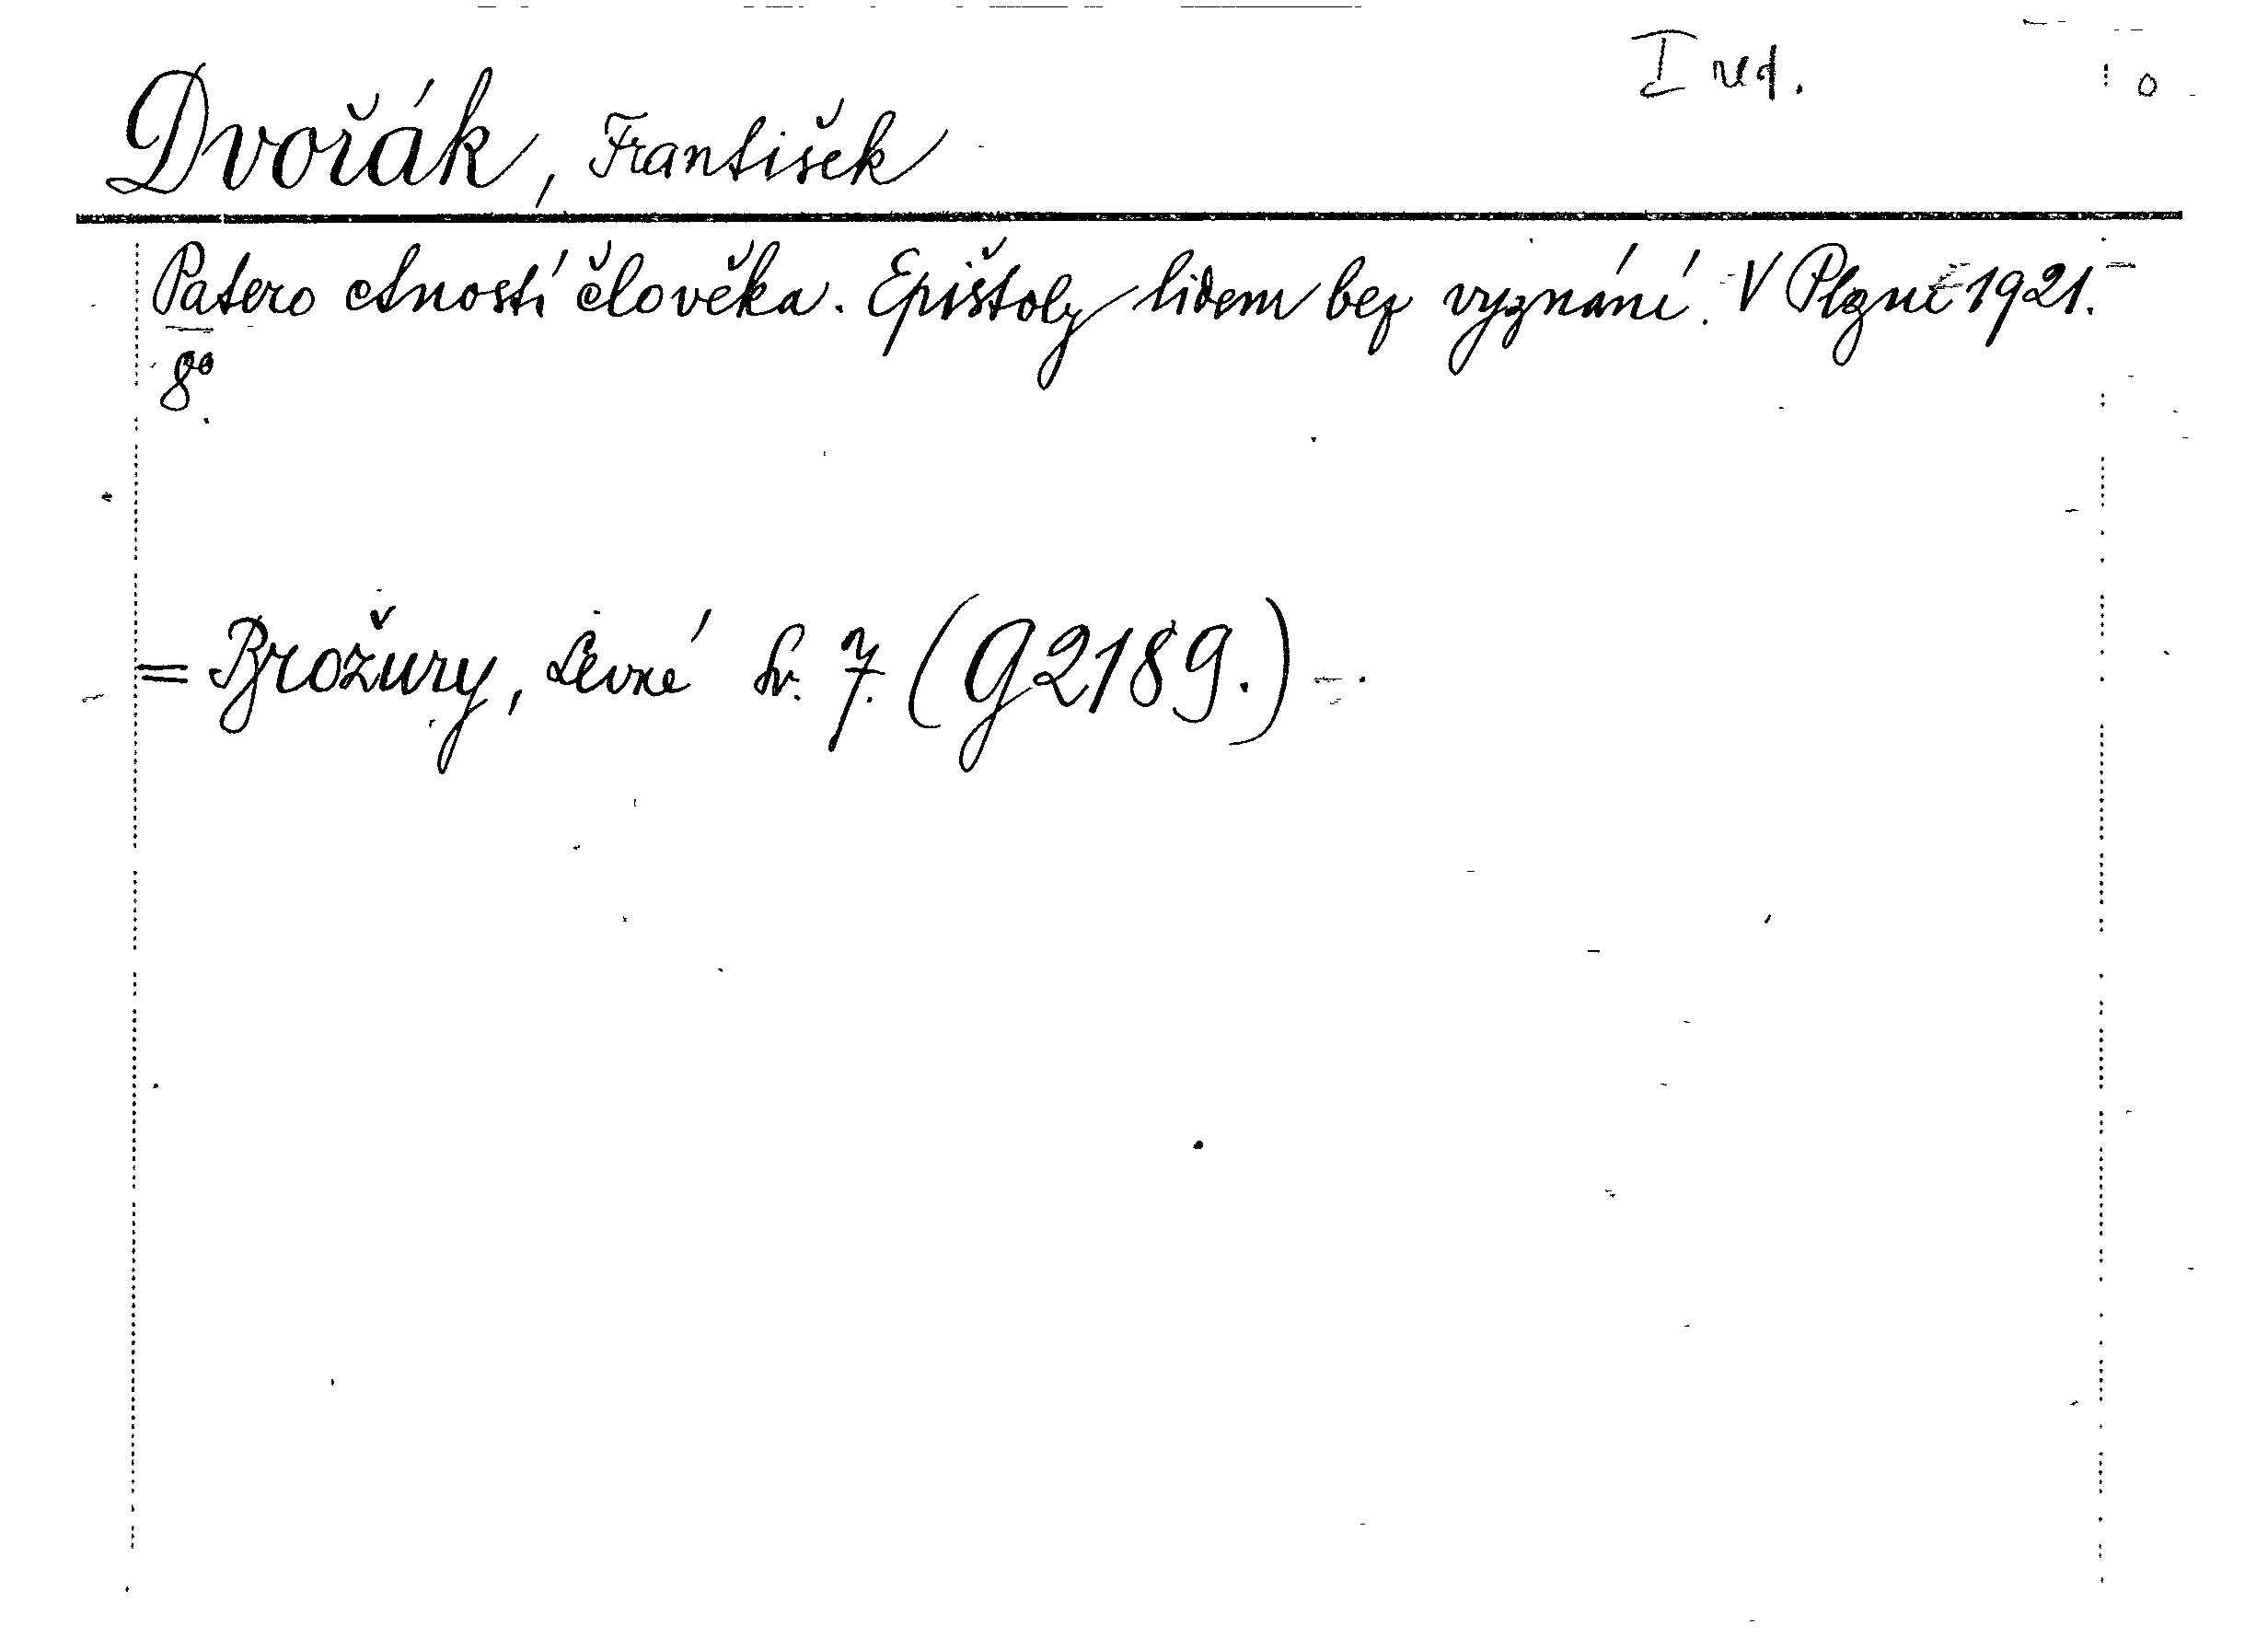 I
Dvořák, František
Patero ctností člověka. Epištoly lidem bez vyznání. V Plzni 1921.
8°.
= Brožury, Levné Sv. 7. (G2189.)